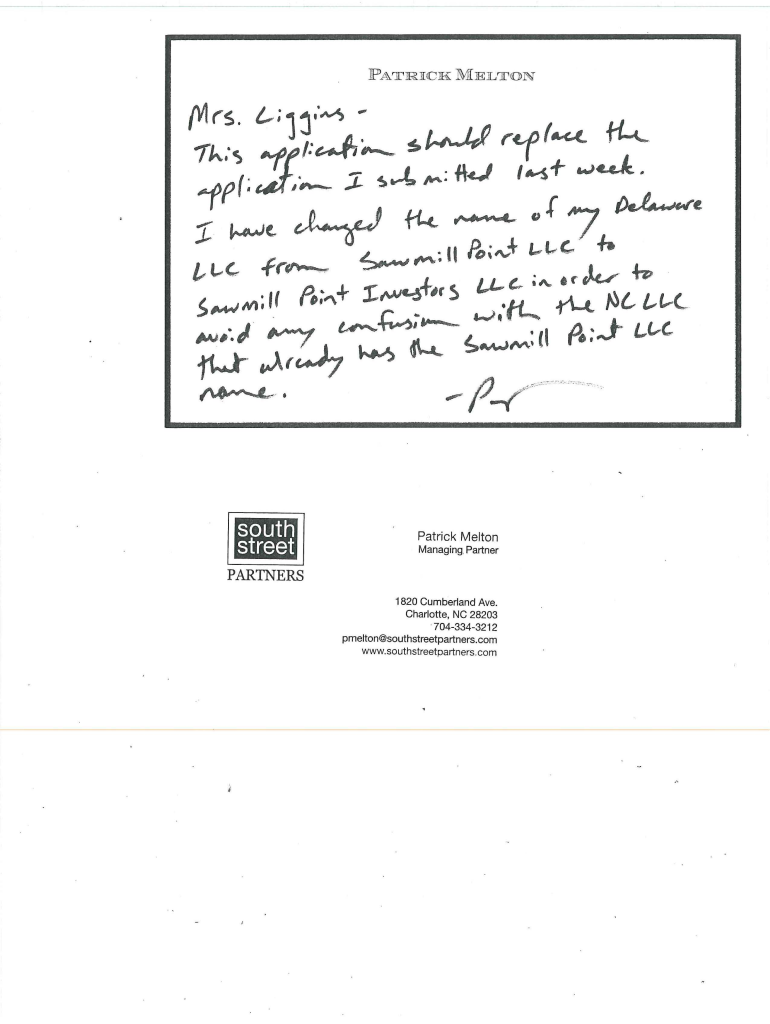 PATRICK MELTON
Mrs. Liggins -
This application should replace the
application I submitted last week.
I have changed the name of my Delaware
LLC from Sawmill Point LLC to
Sawmill Point Investors LLC in order to
avoid any confusion with the NC LLC
that already has the Sawmill Point LLC
name.
south
street
PARTNERS
Patrick Melton
Managing Partner
1820 Cumberland Ave.
Charlotte, NC 28203
704-334-3212
pmelton@southstreetpartners.com
www.southstreetpartners.com